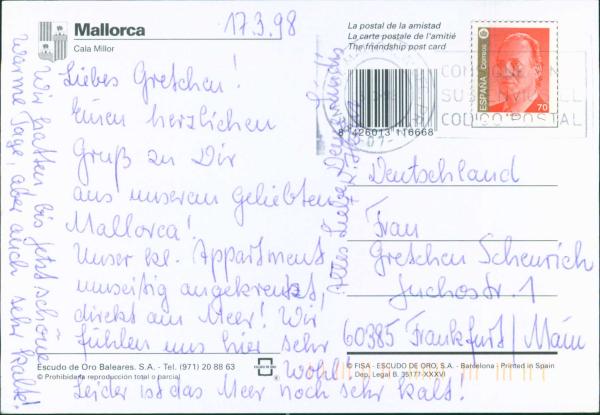 Mallorca
Cala Millor
17.3.98
Liebes Gretchen!
Einen herzlichen
Gruß zu Dir
aus unserem geliebten
Mallorca!
Unser Appartment
umseitig angekreuzt,
direkt am Meer! Wir
fühlen uns hier sehr
wohl!
Leider ist das Meer noch sehr kalt!
Wir hatten bis jetzt schöne
warme Tage, aber auch sehr kalte!
Alles Liebe
La postal de la amistad
La carte postale de l'amitié
The friendship post card
8 426013 116668
ESPAÑA
Correos
70
CODIGO POSTAL
Deutschland
Frau
Gretchen Scheurich
Juchostr. 1
60385 Frankfurt/Main
Escudo de Oro Baleares. S.A. - Tel. (971) 20 88 63
© Prohibida la reproducción total o parcial
© FISA - ESCUDO DE ORO, S.A. - Barcelona - Printed in Spain
Dep. Legal B. 35177-XXXVI